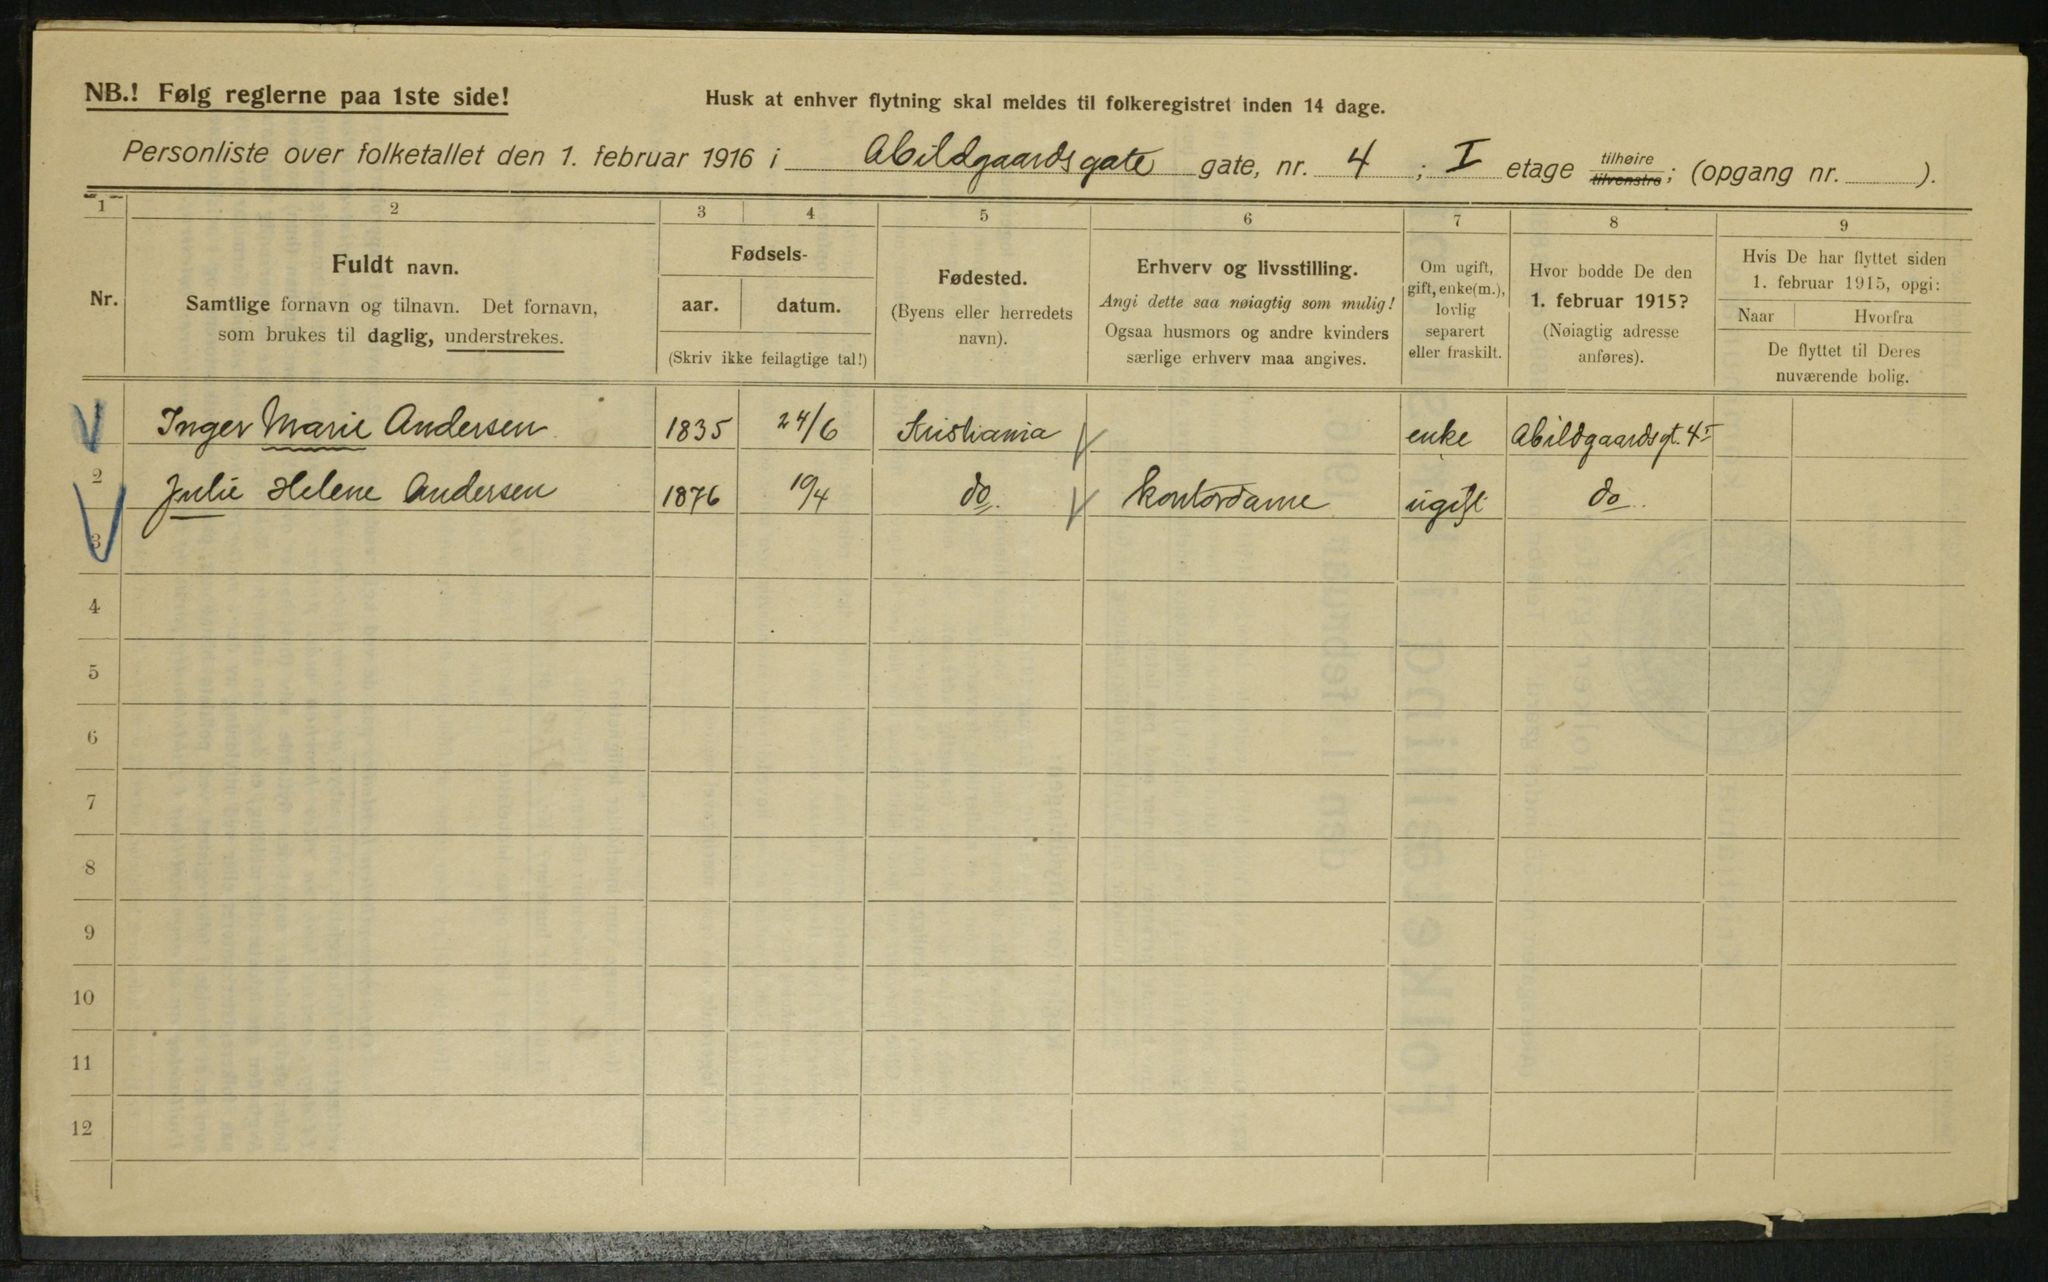 NB.! Følg reglerne paa 1ste side!
Husk at enhver flytning skal meldes til folkeregistret inden 14 dage.
Personliste over folketallet den 1. februar 1916 i Abildgaardsgate gate, nr. 4 ; I etage tilhøire tilvenstre; (opgang nr. ).
1 2 3 4 5 6 7 8 9
Nr.
Fuldt navn.
Samtlige fornavn og tilnavn. Det fornavn,
som brukes til daglig, understrekes.
Fødsels-
aar. datum.
(Skriv ikke feilagtige tal!)
Fødested.
(Byens eller herredets
navn).
Erhverv og livsstilling.
Angi dette saa nøiagtig som mulig!
Ogsaa husmors og andre kvinders
særlige erhverv maa angives.
Om ugift,
gift, enke(m.),
lovlig
separert
eller fraskilt.
Hvor bodde De den
1. februar 1915?
(Nøiagtig adresse
anføres).
Hvis De har flyttet siden
1. februar 1915, opgi:
Naar Hvorfra
De flyttet til Deres
nuværende bolig.
Inger Marie Andersen 1835 24/6 Kristiania enke Abildgaardsgt. 4 I
2 Julie Helene Andersen 1876 19/4 do. kontordame ugift do.
3
4
5
6
7
8
9
10
11
12